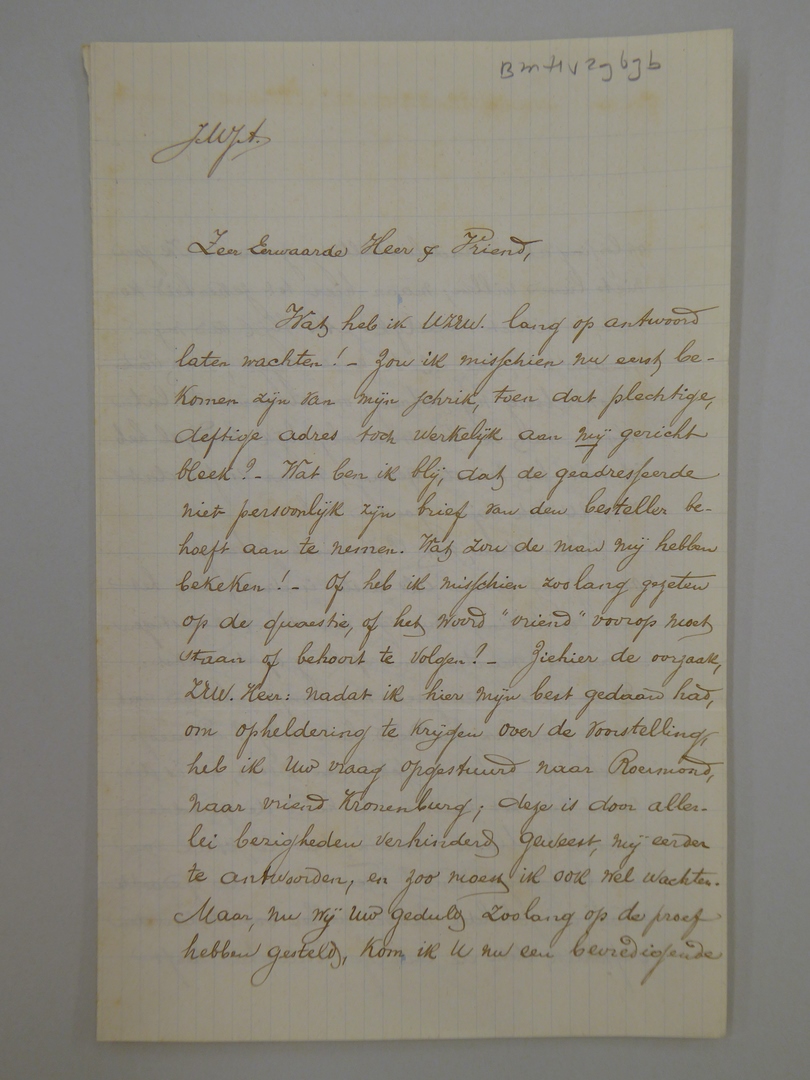 BmHv29b9b
J.M.J.A.
Zeer Eerwaarde Heer & Vriend,
Wat heb ik UZEW. lang op antwoord
laten wachten! – Zou ik misschien nu eerst be-
komen zijn van mijn schrik, toen dat plechtige,
deftige adres toch werkelijk aan mij gericht
bleek? – Wat ben ik blij, dat de geadresseerde
niet persoonlijk zijn brief van den besteller be-
hoeft aan te nemen. Wat zou de man mij hebben
bekeken! – Of heb ik misschien zoolang gezeten
op de quaestie, of het woord "vriend" voorop moet
staan of behoort te volgen? – Ziehier de oorzaak,
ZEW. Heer: nadat ik hier mijn best gedaan had,
om opheldering te krijgen over de voorstelling,
heb ik Uw vraag opgestuurd naar Roermond,
naar vriend Kronenburg; deze is door aller-
lei bezigheden verhinderd geweest, mij eerder
te antwoorden, en zoo moest ik ook wel wachten.
Maar, nu wij Uw geduld zoolang op de proef
hebben gesteld, kom ik U nu een bevredigende